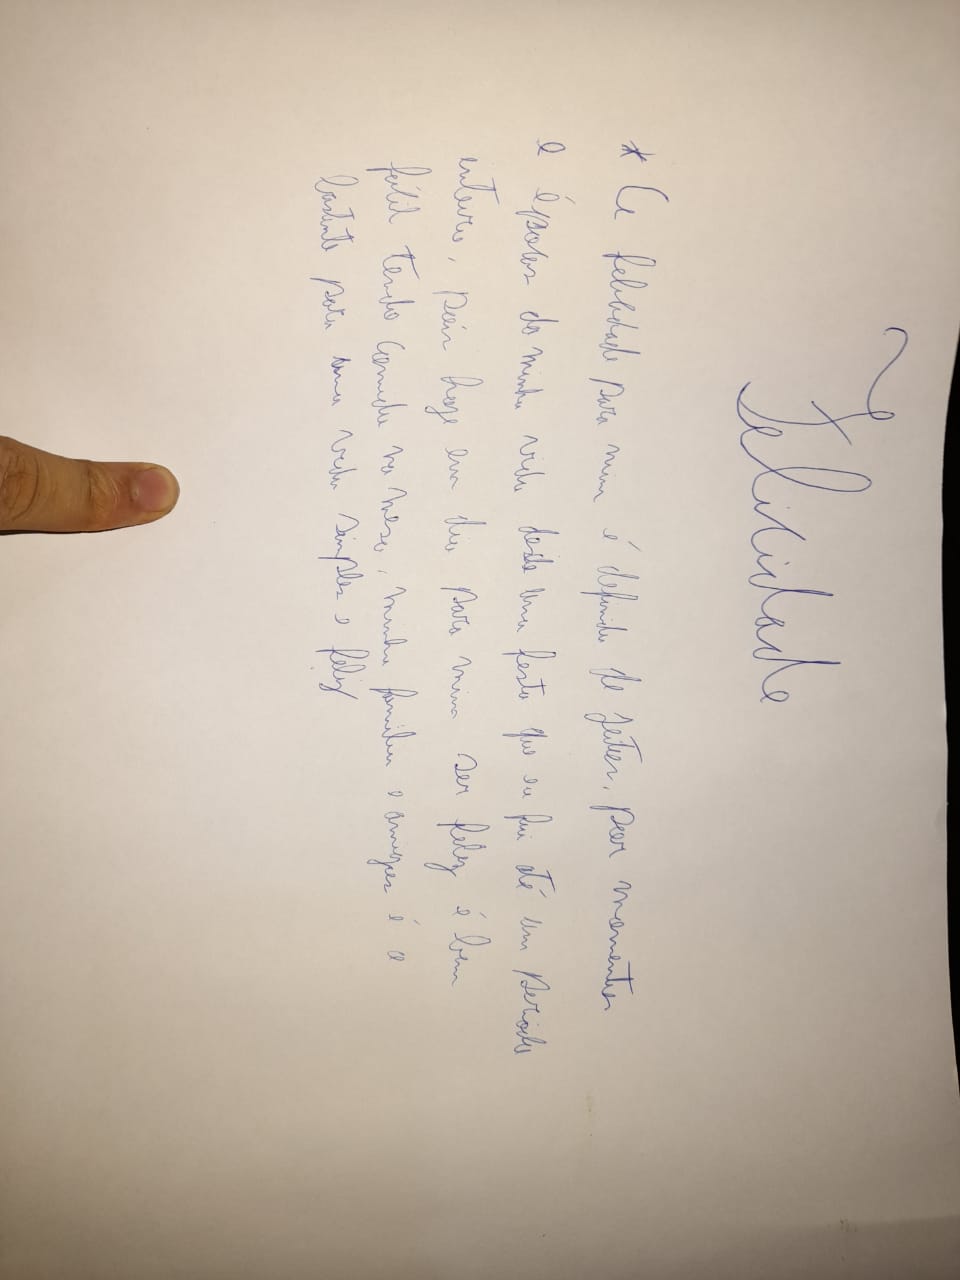 Felicidade
* A felicidade para mim é definida de jeitos, por momentos
e épocas da minha vida desde uma festa que eu fui até um periodo
inteiro, pois hoje em dia para mim ser feliz é bem
fácil tendo comida na mesa, minha familia e amigos é o
bastante para uma vida simples e feliz